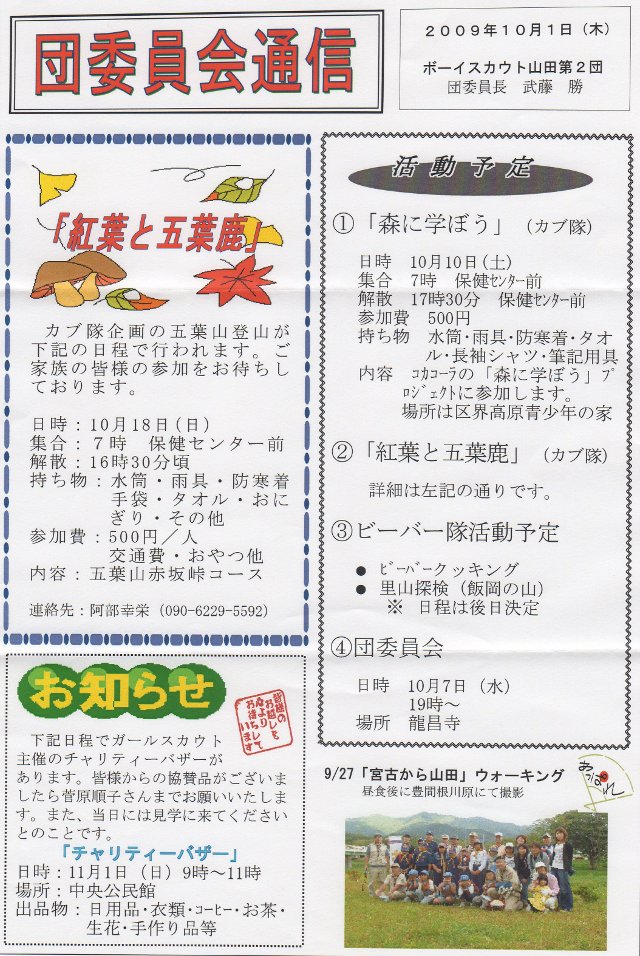 団委員会通信
2009年10月1日（木）
ボーイスカウト山田第2団
団委員長　武藤　勝
「紅葉と五葉鹿」
カブ隊企画の五葉山登山が
下記の日程で行われます。ご
家族の皆様の参加をお待ちし
ております。
日時：10月18日(日)
集合：7時　保健センター前
解散：16時30分頃
持ち物：水筒・雨具・防寒着
手袋・タオル・おに
ぎり・その他
参加費：500円／人
交通費・おやつ他
内容：五葉山赤坂峠コース
連絡先：阿部幸栄（090-6229-5592）
お知らせ
皆様の
お越しを
心より
お待ちして
います
下記日程でガールスカウト
主催のチャリティーバザーが
あります。皆様からの協賛品がございま
したら菅原順子さんまでお願いいたしま
す。また、当日には見学に来てください
とのことです。
「チャリティーバザー」
日時：11月1日（日）9時～11時
場所：中央公民館
出品物：日用品・衣類・コーヒー・お茶・
生花・手作り品等
活動予定
①「森に学ぼう」（カブ隊）
日時　10月10日(土)
集合　7時　保健センター前
解散　17時30分　保健センター前
参加費　500円
持ち物　水筒・雨具・防寒着・タオ
ル・長袖シャツ・筆記用具
内容　コカコーラの「森に学ぼう」プ
ロジェクトに参加します。
場所は区界高原青少年の家
②「紅葉と五葉鹿」（カブ隊）
詳細は左記の通りです。
③ビーバー隊活動予定
● ビーバークッキング
● 里山探検（飯岡の山）
※　日程は後日決定
④団委員会
日時　10月7日（水）
19時～
場所　龍昌寺
9/27「宮古から山田」ウォーキング
昼食後に豊間根川原にて撮影